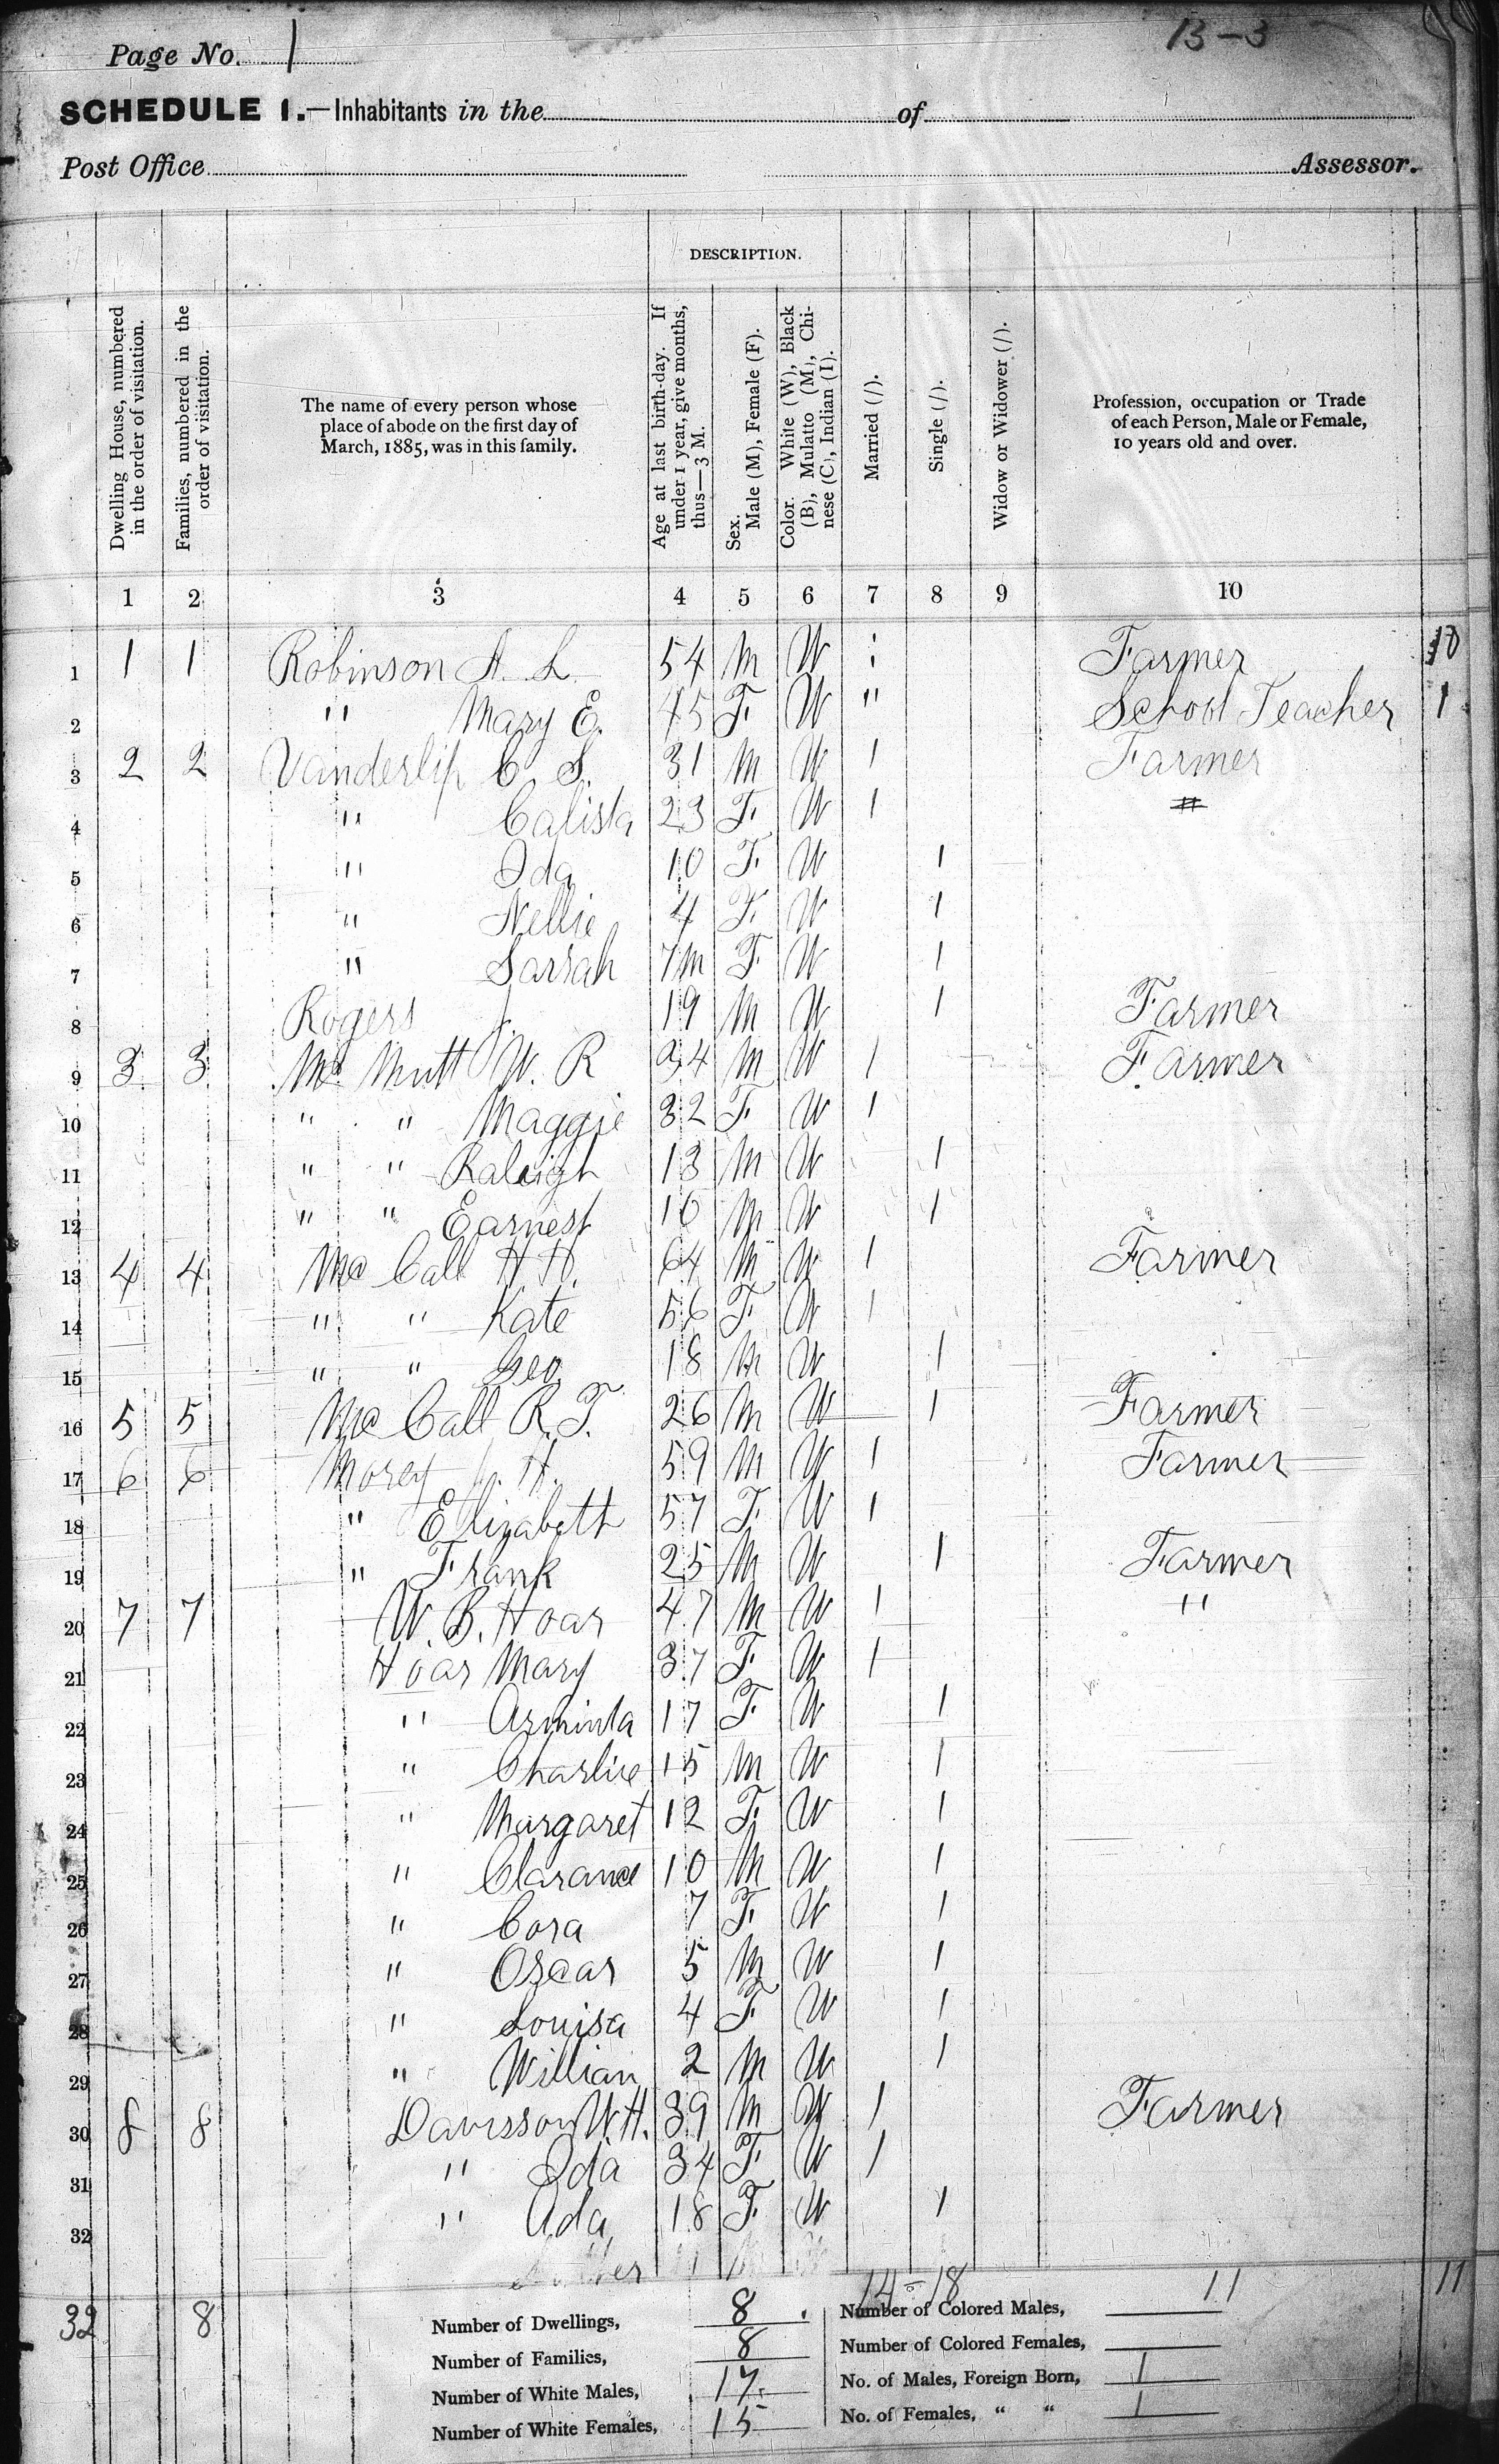 Page No. 1 13-3
SCHEDULE 1.—Inhabitants in the of
Post Office Assessor.
DESCRIPTION.
Dwelling House, numbered in the order of visitation.
Families, numbered in the order of visitation.
The name of every person whose
place of abode on the first day of
March, 1885, was in this family.
Age at last birth-day. If under 1 year, give months, thus—3 M.
Sex. Male (M), Female (F).
Color. White (W), Black (B), Mulatto (M), Chinese (C), Indian (I).
Married (/).
Single (/).
Widow or Widower (/).
Profession, occupation or Trade
of each Person, Male or Female,
10 years old and over.
1 2 3 4 5 6 7 8 9 10
1 1 1 Robinson A. L. 54 M W Farmer 10
2 " Mary E. 45 F W " School Teacher 1
3 2 2 Vanderlip C. S. 31 M W / Farmer
4 " Calista 23 F W /
5 " Ida 10 F W /
6 " Nellie 4 F W /
7 " Sarrah 7m F W /
8 Rogers J. 19 M W / Farmer
9 3 3 Mc Mutt W. R 34 M W / Farmer
10 " " Maggie 32 F W /
11 " " Raleigh 13 M W /
12 " " Earnest 10 M W /
13 4 4 Mc Call H H. 64 M W / Farmer
14 " " Kate 56 F W /
15 " " Geo 18 M W /
16 5 5 Mc Call R. T. 26 M W / Farmer
17 6 6 Morey J. H. 59 M W / Farmer
18 " Elizabeth 57 F W /
19 " Frank 25 M W / Farmer
20 7 7 W. B. Hoar 47 M W / "
21 Hoar Mary 37 F W /
22 " Arminta 17 F W /
23 " Charlie 15 M W /
24 " Margaret 12 F W /
25 " Clarance 10 M W /
26 " Cora 7 F W /
27 " Oscar 5 M W /
28 " Louisa 4 F W /
29 " Willian 2 M W /
30 8 8 Davisson W. H. 39 M W / Farmer
31 " Ida 34 F W /
32 " Ada 18 F W /
14 - 18 11 11
32 8
Number of Dwellings, 8 Number of Colored Males,
Number of Families, 8 Number of Colored Females,
Number of White Males, 17 No. of Males, Foreign Born, 1
Number of White Females, 15 No. of Females, " " 1